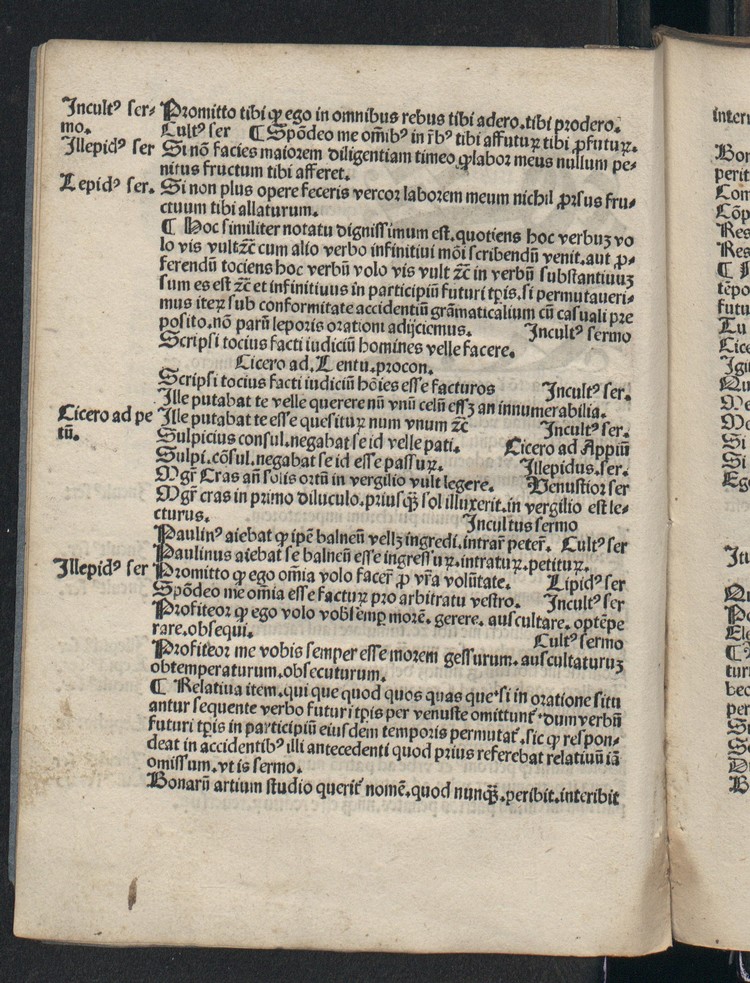 Incultꝰ ser⸗ Promitto tibi ꝙ ego in omnibus rebus tibi adero.tibi prodero.
mo. Cultꝰ ser ¶ Spōdeo me om̄ibꝰ in r̄bꝰ tibi affuturꝝ tibi ꝓfuturꝝ.
Illepidꝰ ser Si nō facies maiorem diligentiam timeo ꝙ labor meus nullum pe⸗
nitus fructum tibi afferet.
Lepidꝰ ser. Si non plus opere feceris vercor laborem meum nichil ꝓrsus fru⸗
ctuum tibi allaturum.
¶ Hoc similiter notatu dignissimum est.quotiens hoc verbuꝫ vo
lo vis vult ꝛc̄ cum alio verbo infinitiui mōi scribendū venit.aut ꝓ⸗
ferendū tociens hoc verbū volo vis vult ꝛc̄ in verbū substantiuuꝫ
sum es est ꝛc̄ et infinitiuus in participiū futuri tp̄is.si permutaueri⸗
mus iteꝝ sub conformitate accidentiū grāmaticalium cū casuali pre
posito.nō parū leporis orationi adijciemus. Incultꝰ sermo
Scripsi tocius facti iudiciū homines velle facere.
Cicero ad.Lentu.procon.
Scripsi tocius facti iudiciū hōies esse facturos Incultꝰ ser.
Ille putabat te velle querere nū vnū celū essꝫ an innumerabilia.
Cicero ad pe Ille putabat te esse quesituꝝ num vnum ꝛc̄ Incultꝰ ser.
tū. Sulpicius consul.negabat se id velle pati. Cicero ad Appiū
Sulpi.cōsul.negabat se id esse passuꝝ. Illepidus.ser.
Mgr̄ Cras an̄ solis ortū in vergilio vult legere. Venustior ser
Mgr̄ cras in primo diluculo.priusqꝫ̄ sol illuxerit.in vergilio est le⸗
cturus. Incultus sermo
Paulinꝰ aiebat ꝙ ip̄e balneū vellꝫ ingredi.intrar̄ peter̄. Cultꝰ ser
Paulinus aiebat se balneū esse ingressuꝝ.intratuꝝ.petituꝝ.
Illepidꝰ ser Promitto ꝙ ego om̄ia volo facer̄ ꝓ vr̄a volūtate. Lipidꝰ ser
Spōdeo me om̄ia esse facturꝝ pro arbitratu vestro. Incultꝰ ser
Profiteor ꝙ ego volo vobis semꝑ morē.gerere.auscultare.optēpe
rare.obsequi. Cultꝰ sermo
Profiteor me vobis semper esse morem gessurum.auscultaturuꝫ
obtemperaturum.obsecuturum.
¶ Relatiua item.qui que quod quos quas que.si in oratione situ
antur sequente verbo futuri tp̄is per venuste omittunt᷑.dum verbū
futuri tp̄is in participiū eiusdem temporis permutat᷑.sic ꝙ respon⸗
deat in accidentibꝰ illi antecedenti quod prius referebat relatiuū iā
omissum.vt is sermo.
Bonarū artium studio querit᷑ nomē.quod nunqꝫ̄.peribit.interibit